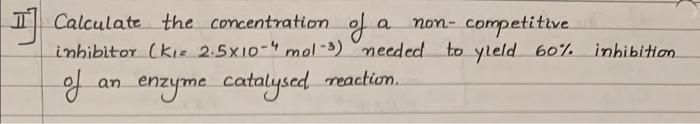 II] Calculate the concentration of a non-competitive
inhibitor (KI= 2.5x10-4 mol-3) needed to yield 60% inhibition
of an enzyme catalysed reaction.